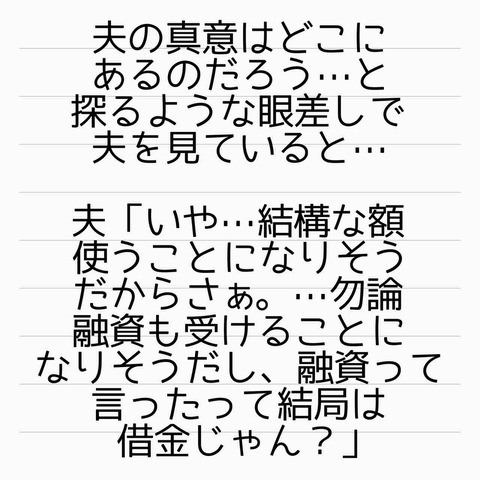 夫の真意はどこに
あるのだろう…と
探るような眼差しで
夫を見ていると…
夫「いや…結構な額
使うことになりそう
だからさぁ。…勿論
融資も受けることに
なりそうだし、融資って
言ったって結局は
借金じゃん？」